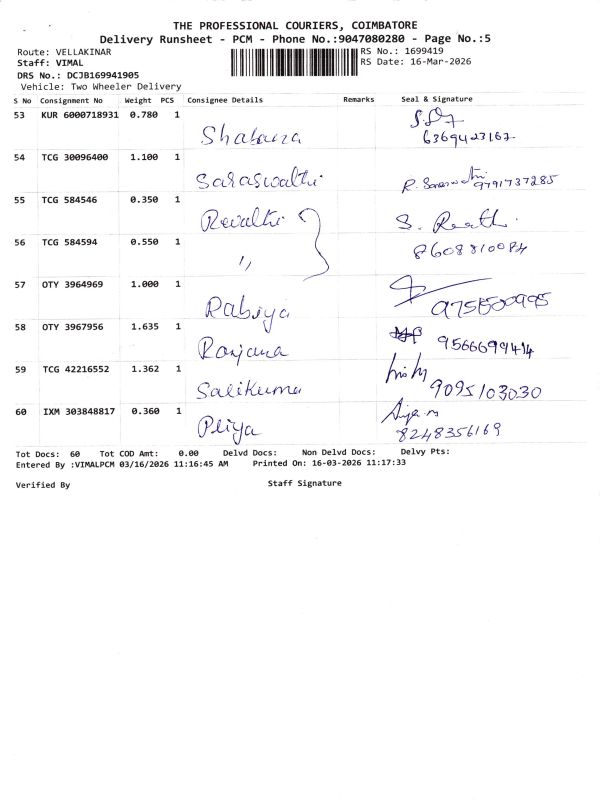 THE PROFESSIONAL COURIERS, COIMBATORE
Delivery Runsheet - PCM - Phone No.:9047080280 - Page No.:5
Route: VELLAKINAR
RS No.: 1699419
Staff: VIMAL
RS Date: 16-Mar-2026
DRS No.: DCJB169941905
Vehicle: Two Wheeler Delivery
S No Consignment No Weight PCS Consignee Details Remarks Seal & Signature
53 KUR 6000718931 0.780 1
Shabana
6369423167
54 TCG 30096400 1.100 1
Saraswathi R. Saraswathi 9791737285
55 TCG 584546 0.350 1
Revathi S. Revathi
56 TCG 584594 0.550 1
,, 8608810084
57 OTY 3964969 1.000 1
Rabiya
58 OTY 3967956 1.635 1
Ranjana 9566699414
59 TCG 42216552 1.362 1
Salikuma 9095103030
60 IXM 303848817 0.360 1
Pliya 8248356169
Tot Docs: 60 Tot COD Amt: 0.00 Delvd Docs: Non Delvd Docs: Delvy Pts:
Entered By :VIMALPCM 03/16/2026 11:16:45 AM Printed On: 16-03-2026 11:17:33
Verified By Staff Signature